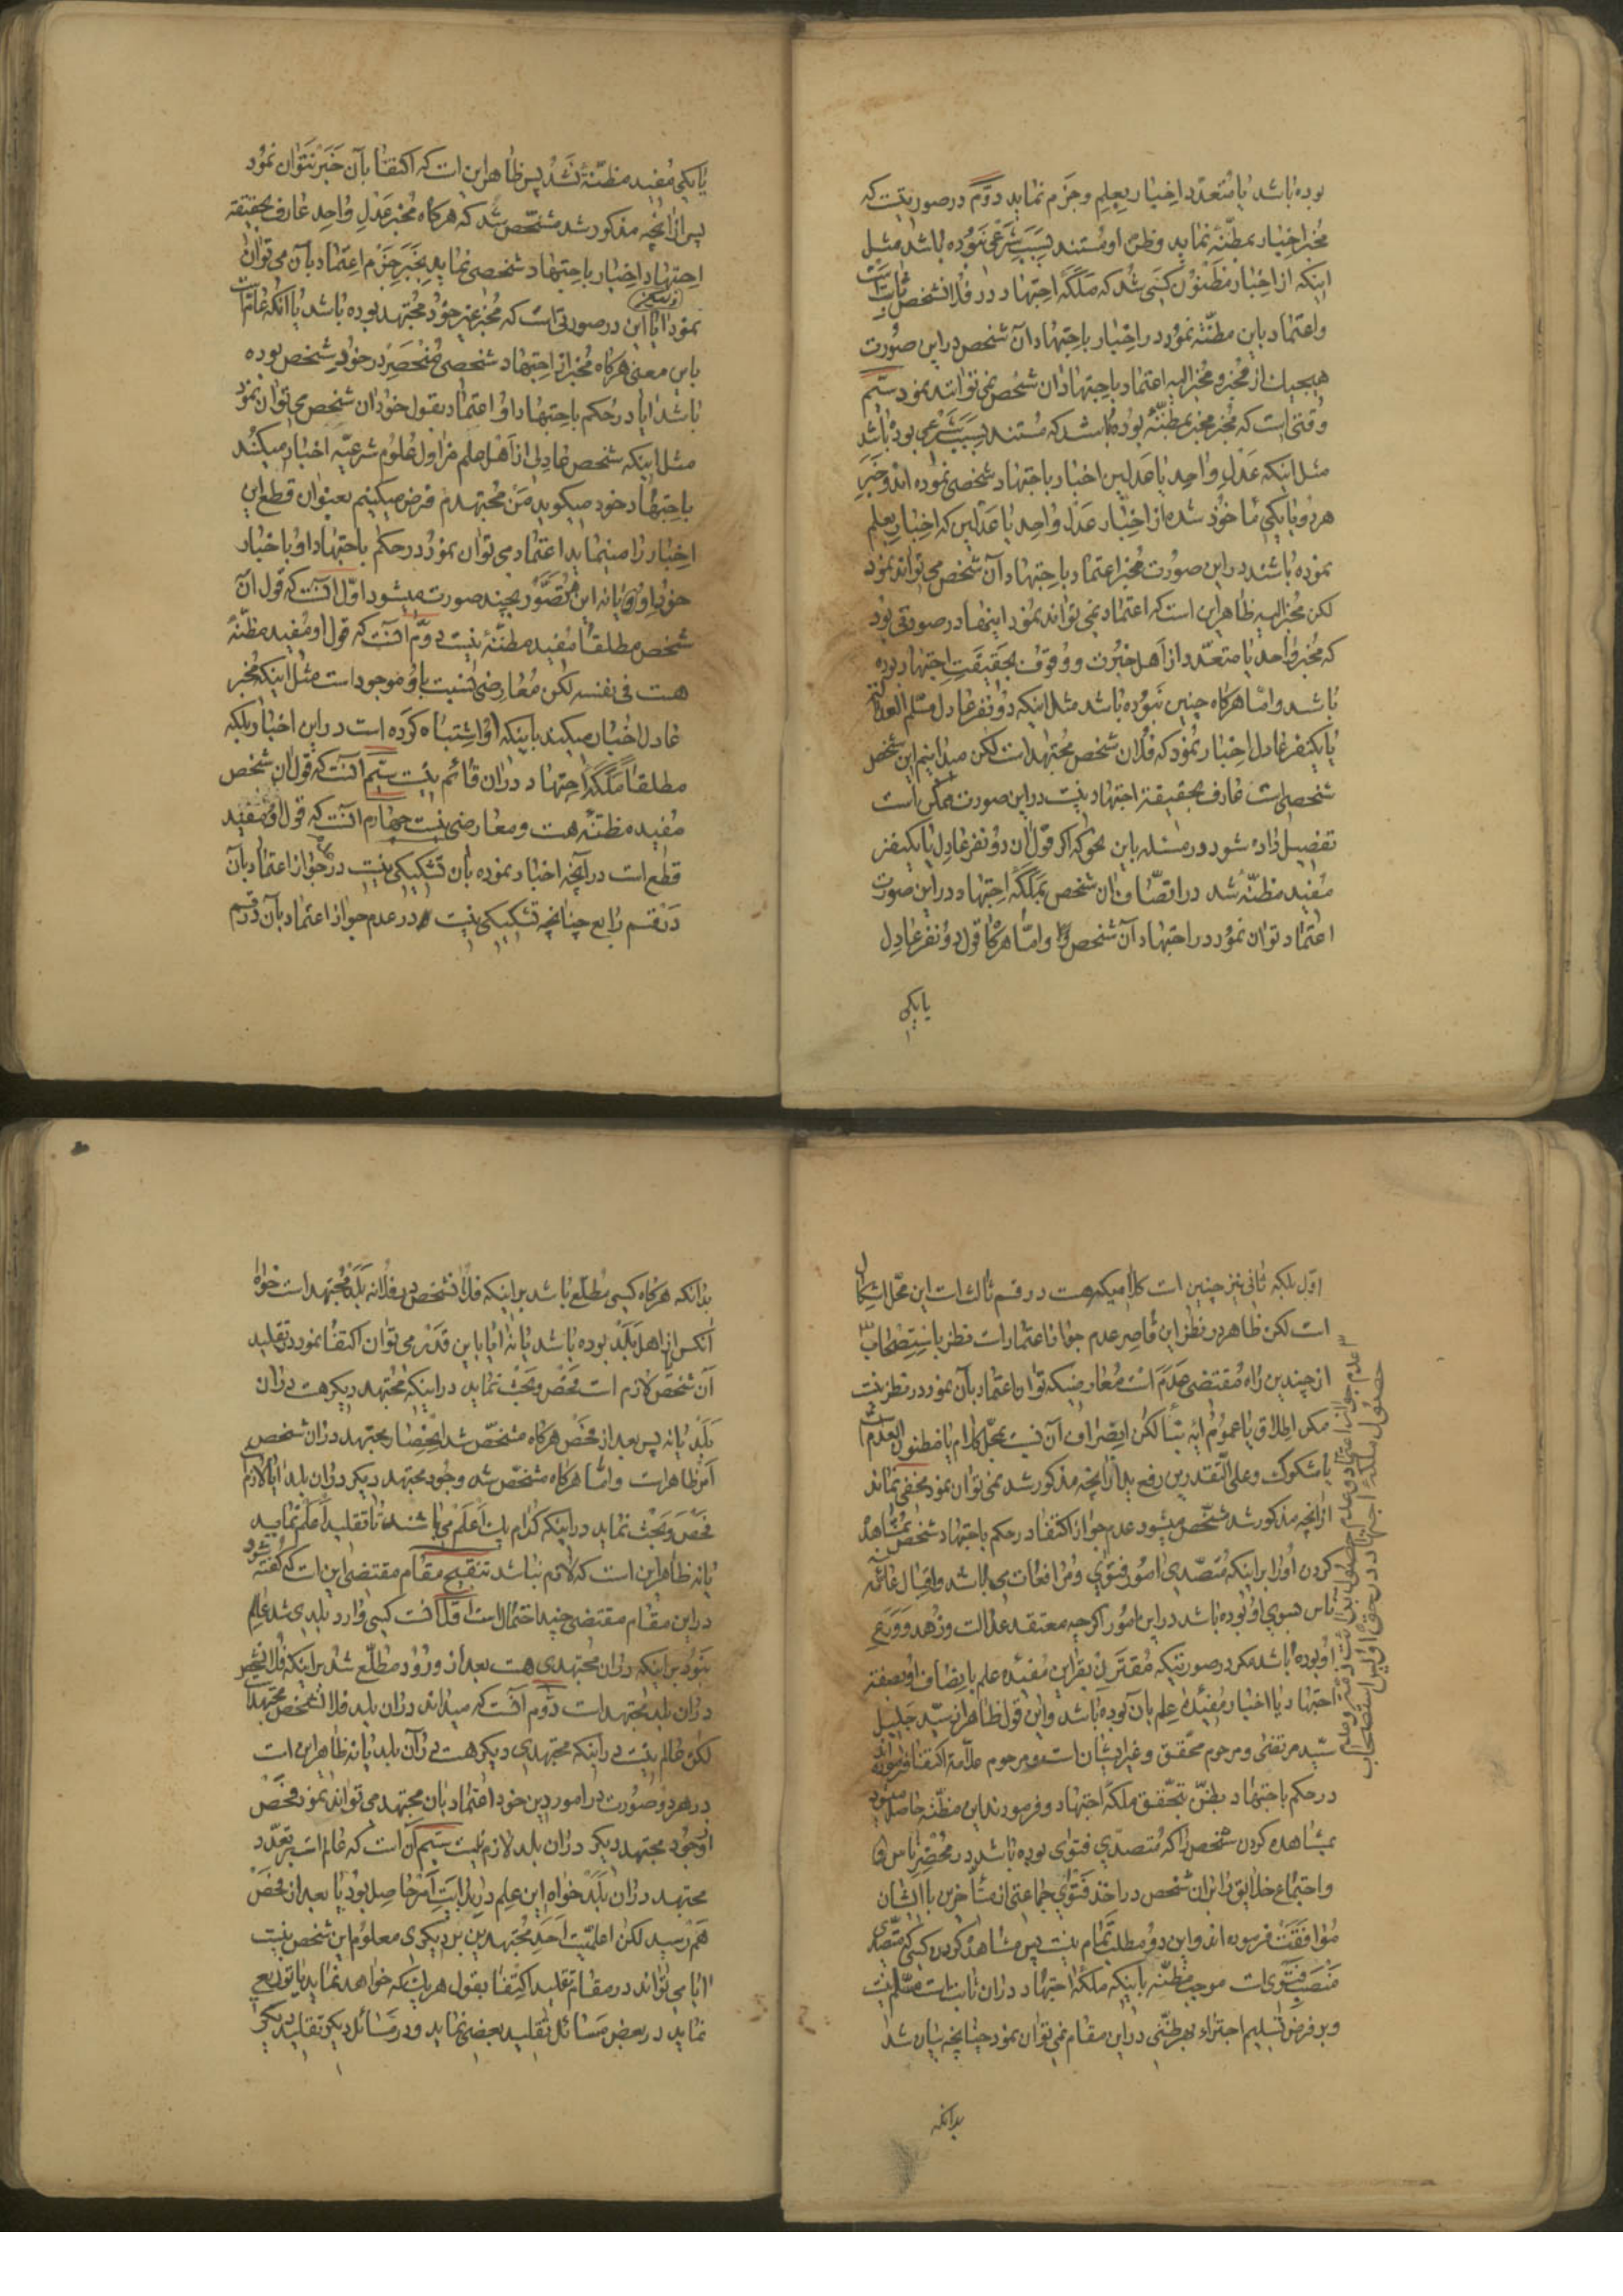 بوده باشد یا متعدّد اخبار بعلم و جزم نماید دوّم در صورتیست که
مخبر اخبار بمظنّه نماید و ظنّ او مستند بسبب شرعی نبوده باشد مثل
اینکه از اخبار مظنون کسی شد که ملکهٔ اجتهاد در فلانشخص ثابت است
و اعتماد باین مظنّه نمود در اخبار باجتهاد آن شخص در این صورت
هیچیك از مخبر و مخبر الیه اعتماد باجتهاد ان شخص نمی توانند نمود سیّم
وقتی است که مخبر مخبر بمظنّه بوده باشد که مستند بسبب شرعی بوده باشد
مثل اینکه عدل واحد یا عدلین اخبار باجتهاد شخصی نموده اند و خبر
هر دو یا یکی ماخوذ شده از اخبار عدل واحد یا عدلین که اخبار بعلم
نموده باشند در این صورت مخبر اعتماد باجتهاد آن شخص می تواند نمود
لکن مخبر الیه ظاهر این است که اعتماد نمی تواند نمود اینها در صورتی بود
که مخبر واحد یا متعدّد از اهل خبرت و وقوف بحقیقت اجتهاد بوده
باشد و امّا هرکاه چنین نبوده باشد مثل اینکه دو نفر عادل مسلّم العدالة
یا یکنفر عادل اخبار نمود که فلان شخص مجتهد است لکن میدانیم این شخص
شخصی است غارف بحقیقة اجتهاد نیست در این صورت ممکن است
تفصیل داده شود در مسئله باین نحو که اکر قول ان دو نفر عادل یا یکنفر
مفید مظنّه شد در اتّصاف ان شخص بملکهٔ اجتهاد در این صورت
اعتماد توان نمود در اجتهاد آن شخص و امّا هرکاه قول دو نفر عادل
یا یکی
یا یکی مفید مظنّه نشد پس ظاهر این است که اکتفا بآن خبر نتوان نمود
پس از انچه مذکور شد مشخّص شد که هرکاه مخبر عدل واحد عارف بحقیقة
اجتهاد اخبار باجتهاد شخصی نماید بخبر جزم اعتماد بآن می توان
نمود ایا این در صورتی است که مخبر غیر خود مجتهد بوده باشد یا آنکه عام است
باین معنی هرکاه مخبر از اجتهاد شخصی منحصر در خود شخص بوده
باشد ایا در حکم باجتهاد او اعتماد بقول خود ان شخص می توان نمود
مثل اینکه شخص عادلی از اهل علم مزاول علوم شرعیّه اخبار میکند
باجتهاد خود میکوید من مجتهدم فرض میکنیم بعنوان قطع این
اخبار را مینماید اعتماد می توان نمود در حکم باجتهاد او باخبار
خود او یا نه این متصوّر بچند صورت میشود اوّل آنست که قول آن
شخص مطلقا مفید مظنّه نیست دوّم آنست که قول او مفید مظنّه
هست فی نفسه لکن معارضی نسبت باو موجود است مثل اینکه مخبر
عادل اخبار میکند باینکه او اشتباه کرده است در این اخبار بلکه
مطلقاً ملکهٔ اجتهاد در ان قائم نیست سیّم آنست که قول ان شخص
مفید مظنّه هست و معارضی نیست چهارم آنست که قول او مفید
قطع است در آنچه اخبار نموده بان تشکیکی نیست در جواز اعتماد بآن
در قسم رابع چنانچه تشکیکی نیست در عدم جواز اعتماد بآن در قسم
اوّل بلکه ثانی نیز چنین است کلامیکه هست در قسم ثالث است این محّل اشکال
است لکن ظاهر در نظر این قاصر عدم جواز اعتماد است نظر باستصحاب
از چندین راه مقتضی عدم است معارضیکه توان اعتماد بآن نمود در نظر نیست
مکر اطلاق یا عموم ایه نبأ لکن انصراف آن بمحّل کلام یا مظنون العدم است
یا مشکوک و علی التّقدیرین رفع ید از انچه مذکور شد نمی توان نمود مخفی نماند
از انچه مذکور شد مشخّص میشود عدم جواز اکتفا در حکم باجتهاد شخص بمشاهده
کردن او را بر اینکه متصّدی امور فتوی و مرافعات می باشد و اقبال عامّهٔ
ناس بسوی او بوده باشد در این امور اکرچه معتقد عدالت و زهد و ورع
او بوده باشد مکر در صورتیکه مقترن بقراین مفیده علم باتصاف او بصفة
اجتهاد یا اخبار مفیدهٔ علم بان بوده باشد و این قول ظاهر از سیّد جلیل
سیّد مرتضی و مرحوم محقّق و غیر ایشان است و مرحوم علّامه اکتفا فرموده
در حکم باجتهاد بظنّ بتحقّق ملکهٔ اجتهاد و فرمودند این مظنّه حاصل میشود
بمشاهده کردن شخص را که متصدّی فتوی بوده باشد در محضر ناس
و اجتماع خلایق بر ان شخص در اخذ فتوی جماعتی از متأخّرین با ایشان
موافقت فرموده اند و این دو مطلب تمام نیست پس مشاهده کردن کسیکه متصّدی
منصب فتوی است موجب مظنّه باینکه ملکهٔ اجتهاد در ان ثابت است مسّلم نیست
و بر فرض تسلیم اجتزاء بهر ظنّی در این مقام نمی توان نمود چنانچه بیان شد
بدانکه
عدم جواز اعتماد
حصول ملکهٔ اجتهاد در حق او
بدانکه هرکاه کسی مطلّع باشد بر اینکه فلانشخص در فلانه بلد مجتهد است خواه
آنکس از اهل بلد بوده باشد یا نه ایا باین قدر می توان اکتفا نمود در تقلید
آن شخص لازم است فحص و بحث نماید در اینکه مجتهد دیکر هست در ان
بلد یا نه پس بعد از فحص هرکاه مشخّص شد انحصار مجتهد در ان شخص
امر ظاهر است و امّا هرکاه مشخّص شد وجود مجتهد دیکر در ان بلد ایا لازم است
فحص و بحث نماید در اینکه کدام یك اعلم می باشند تا تقلید اعلم نماید
یا نه ظاهر این است که لازم نباشد تنقیح مقام مقتضی این است که کفته شود
در این مقام مقتضی چند احتمال است اوّل آنست کسی وارد بلدی شد عالم
نبود بر اینکه در ان مجتهدی هست بعد از ورود مطّلع شد بر اینکه فلانشخص
در ان بلد مجتهد است دوّم آنست که میداند در ان بلد فلانشخص مجتهد است
لکن عالم نیست در اینکه مجتهدی دیکر هست در آن بلد یا نه ظاهر این است
در هر دو صورت در امور دین خود اعتماد بان مجتهد می تواند نمود فحص
از وجود مجتهد دیکر در ان بلد لازم نیست سیّم آن است که عالم است بر تعدّد
مجتهد در ان بلد خواه این علم در بدایت امر حاصل بود یا بعد از فحص
هم رسید لکن اعلمیّت احد مجتهدین بر دیکری معلوم این شخص نیست
ایا می تواند در مقام تقلید اکتفا بقول هر یك که خواهد نماید یا توزیع
نماید در بعض مسائل تقلید بعضی نماید و در مسائل دیکر تقلید دیکری